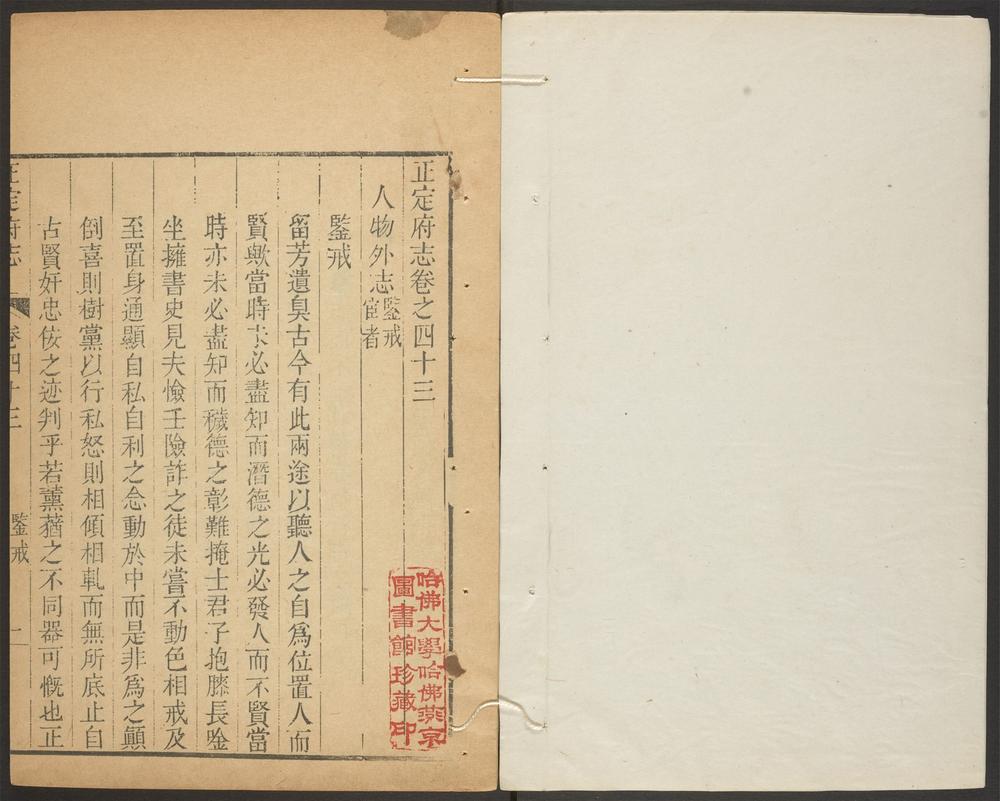 正定府志卷之四十三
人物外志鑒戒宦者
鑒戒
留芳遺臭古今有此兩途以聽人之自爲位置人而
賢歟當時未必盡知而潛德之光必發人而不賢當
時亦未必盡知而穢德之彰難掩士君子抱膝長唫
坐擁書史見夫憸壬險詐之徒未嘗不動色相戒及
至置身通顯自私自利之念動於中而是非爲之顚
倒喜則樹黨以行私怒則相傾相軋而無所底止自
古賢奸忠佞之迹判乎若薰蕕之不同器可慨也正
正定府志 卷四十三 鑒戒 一
哈佛大學哈佛燕京
圖書館珍藏印